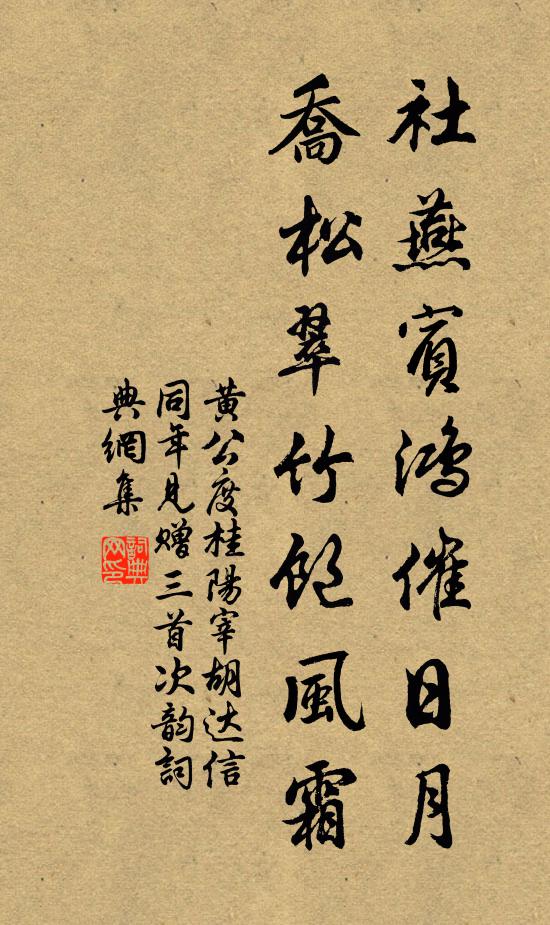 社燕賓鴻催日月
喬松翠竹飽風霜
黃公度桂陽宰胡达信
同年見贈三首次韵詞
典網集
詞典
网印